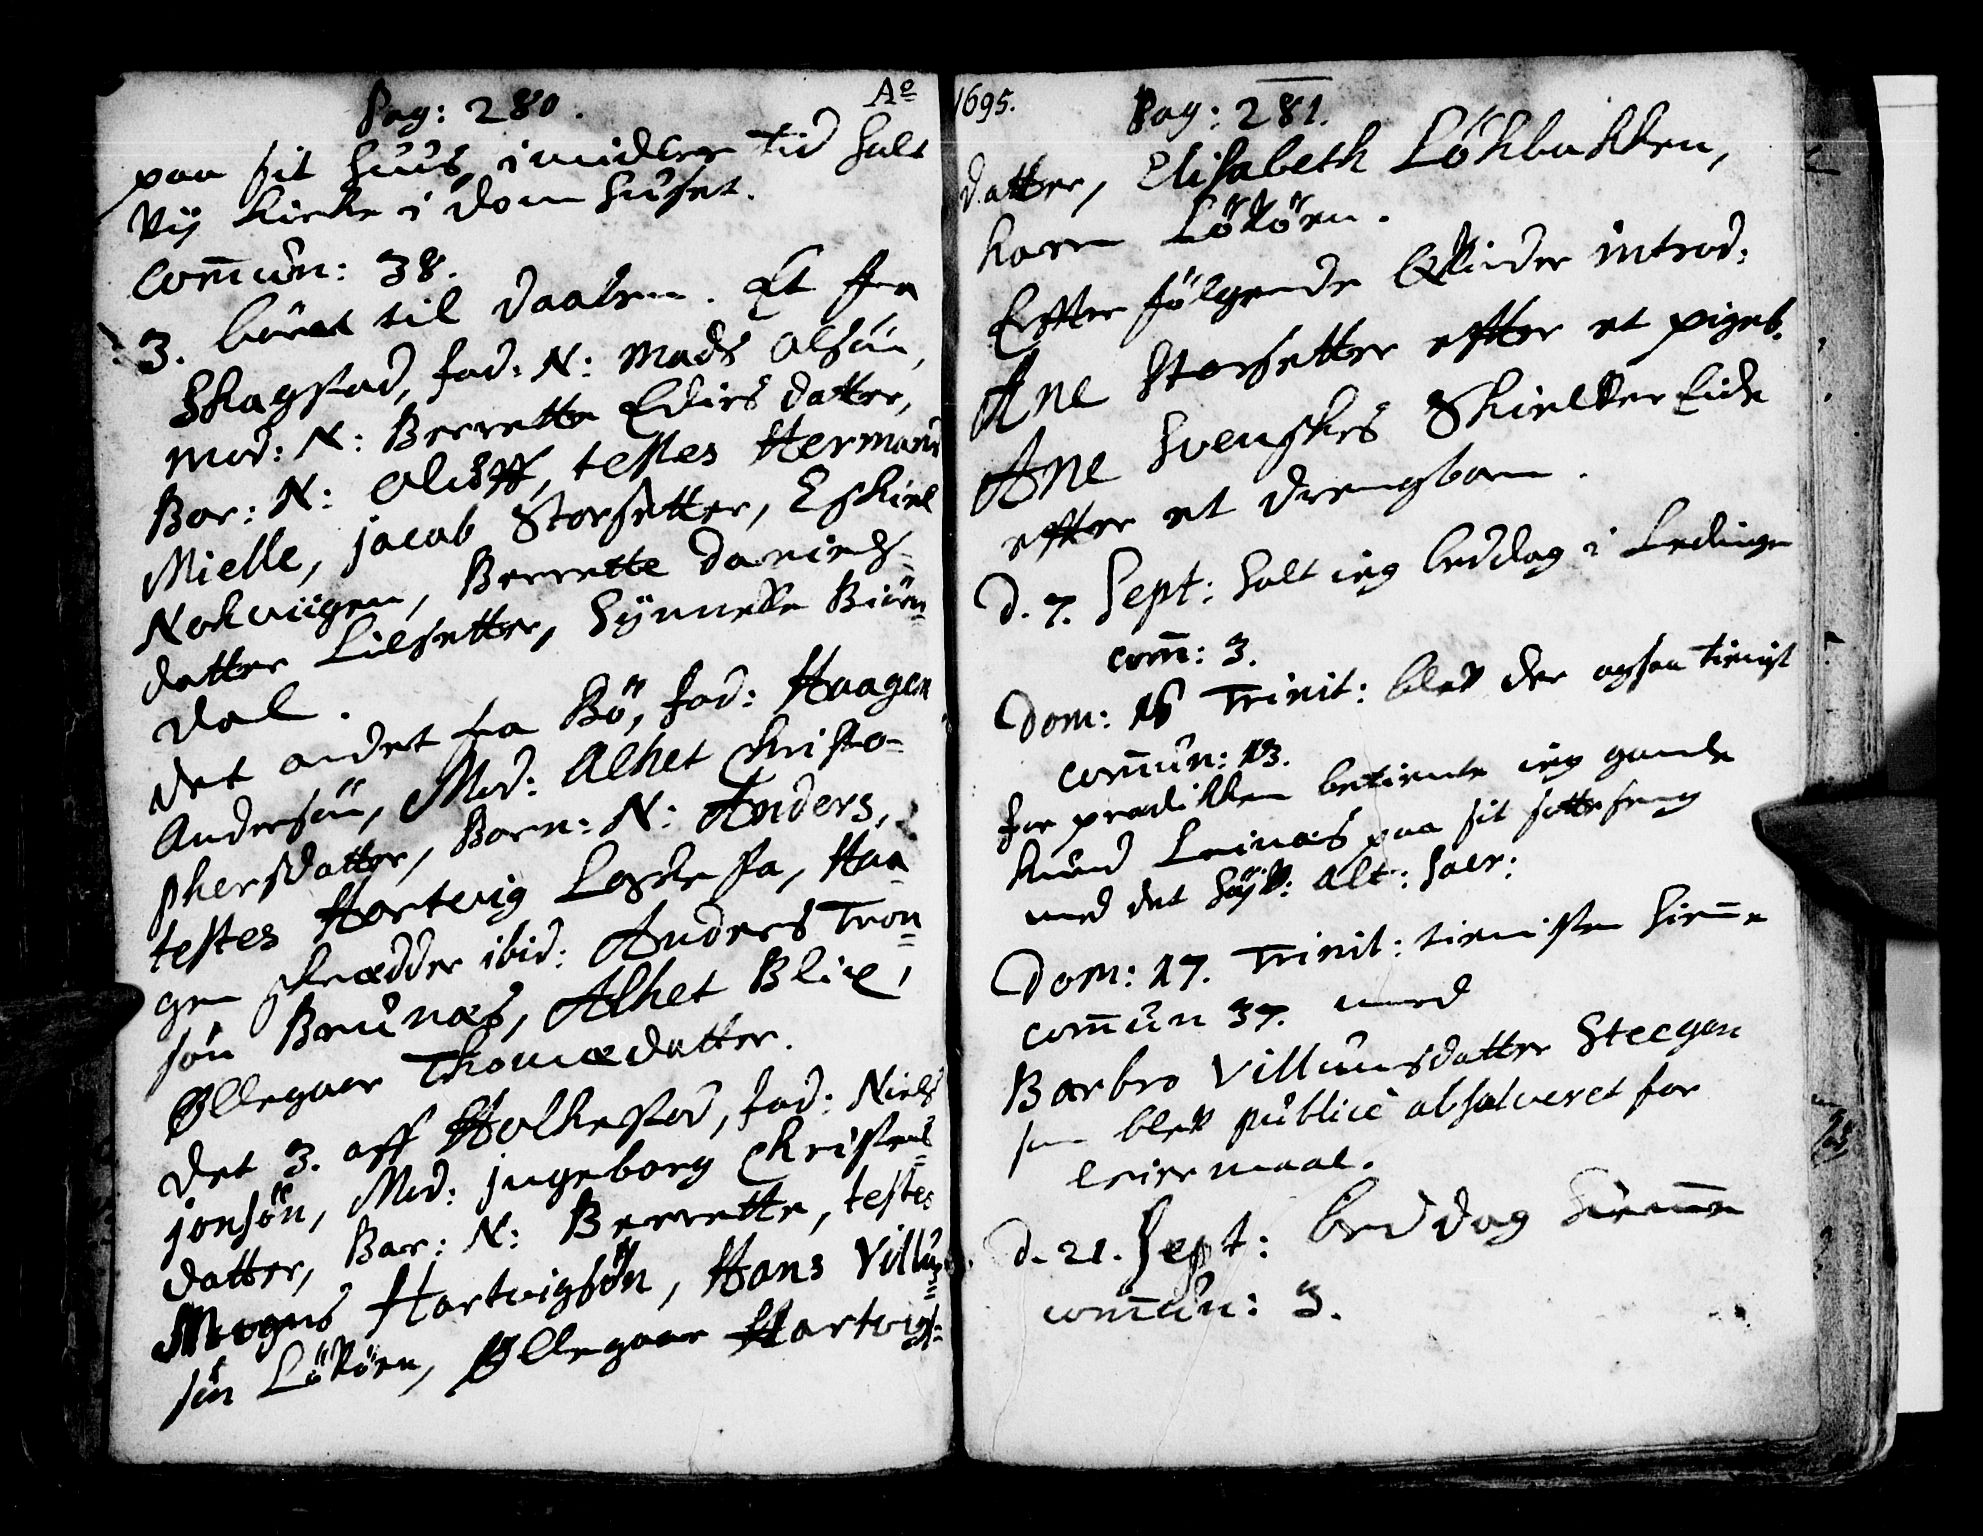 Pag: 280. Aº
paa sit huus, imidler tid holt
vij kirke i dom huset.
Comun: 38.
3. böret til daaben. Et fra
Skagstad, fad: N: Mads Olsön,
Mod: N: Berrette Edisdatter,
Bar: N: Oluff, testes Herman
Mielle, Jacob Storsetter, Eskiel
Nokviigen, Berrette Daniels=
datter Lilsetter, Synneke Biörn
dal.
det andet fra Bö, fad: Haagen
Andersön, Mod: Alhet Christo=
phersdatter, Barn: N: Anders,
testes Hartvig Haa=
gen skrædder ibid: Anders Tron=
sön Brunæs, Alhet Blix,
Øllegaar Thomædatter.
det 3. aff Holkestad, fad: Niels
Jonsön, Mod: Ingeborg Christens=
datter, Bar: N: Berrette, testes
Mogns Hartvigsön, Hans Villum=
sön Lökören, Øllegaar Hartvigs=
1695. Pag: 281.
datter, Elisabeth Lökbakken,
Karen Lökören.
Efter følgende Qvinder introd:
Ane Storsetter efter et pigeb.
Ane Svenskes Skielver Eide
efter et drengbarn.
D. 7. Sept: holt ieg beddag i Ledinge
com: 3.
Dom: 16 Trinit: blev der ogsaa tienist
comun: 13.
for prædikken betiente ieg gamle
Knud Leinæs paa sit sotteseng
med det høyv: Alt: Sacr:
Dom: 17. Trinit: tienisten hieme
comun 37. med
Barbro Villumsdatter Steegen
som blev publicè absolveret for
leiermaal.
d. 21. Sept: beddag hieme
comun: 3.